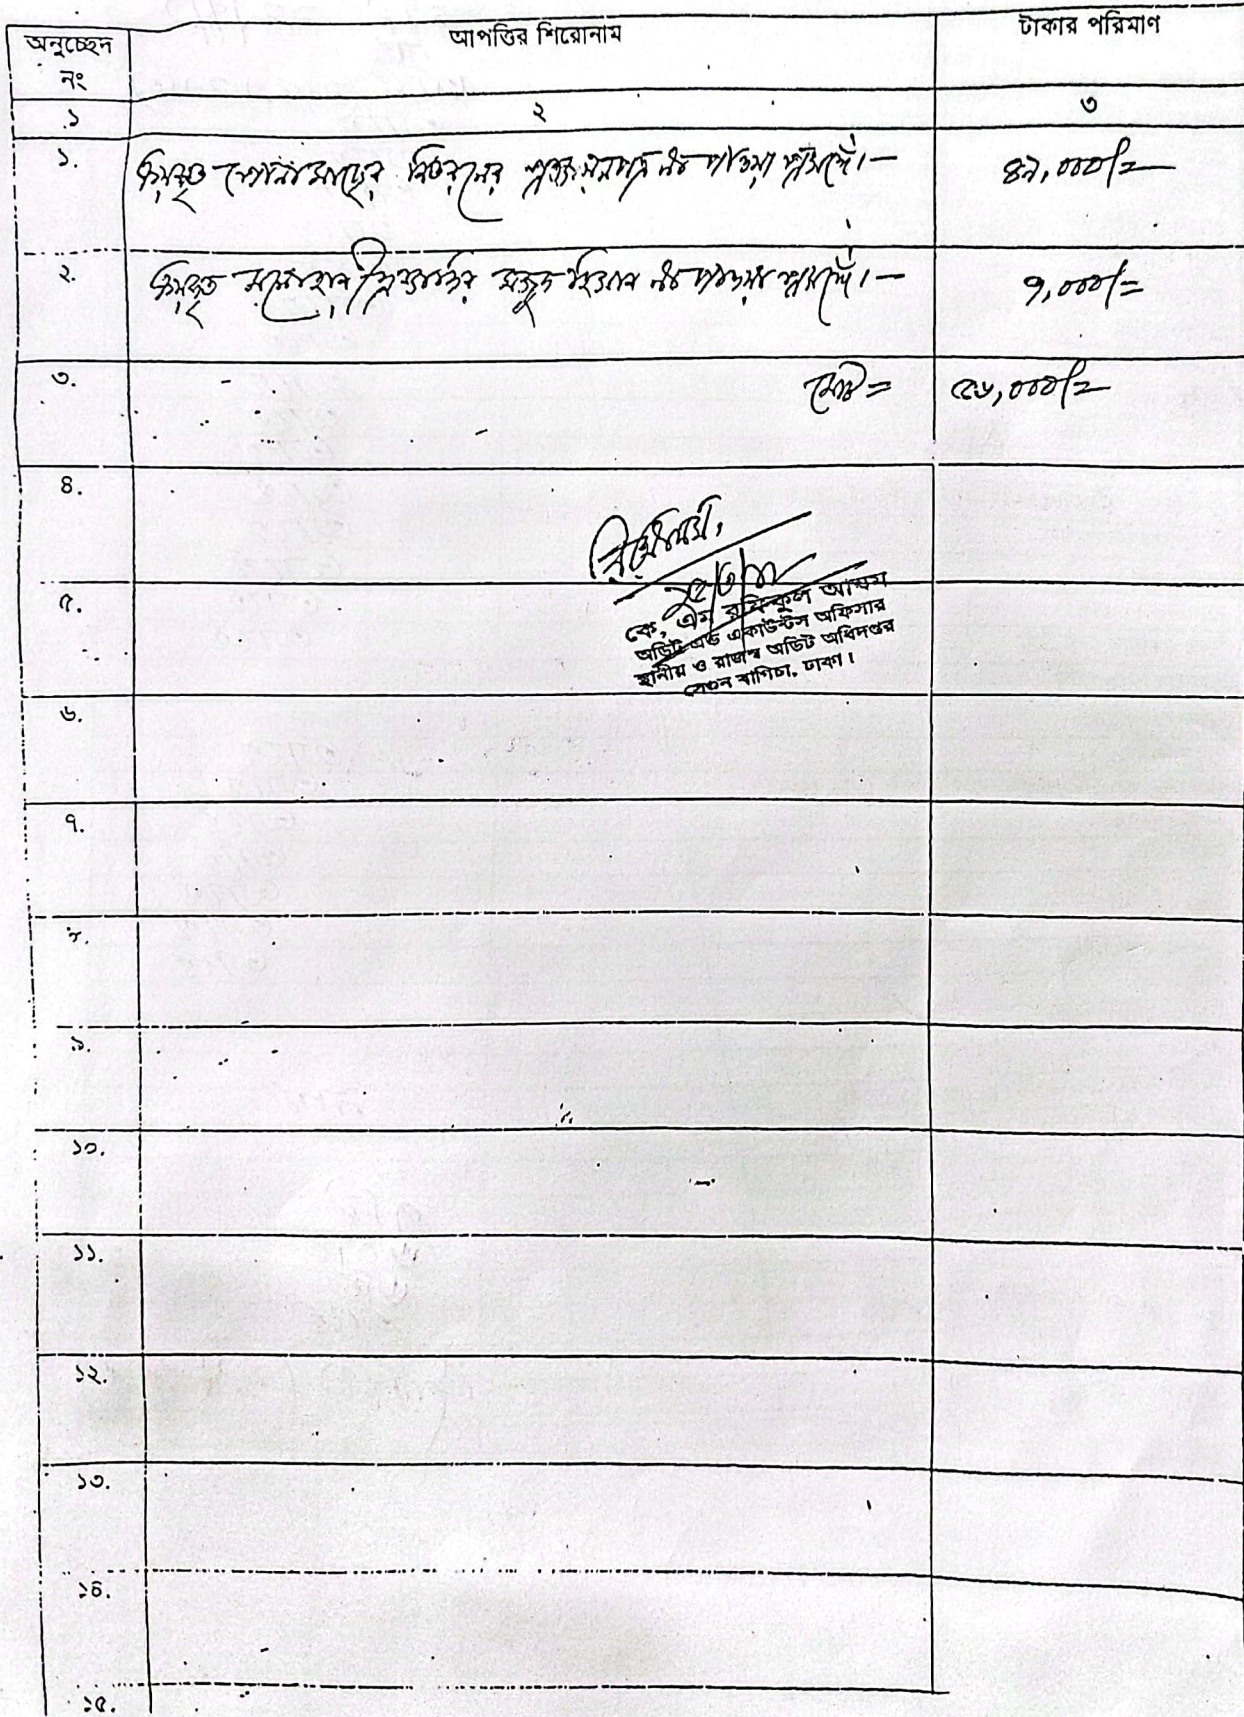 অনুচ্ছেদ নং	আপত্তির শিরোনাম	টাকার পরিমাণ
১	২	৩
১.	ক্রয়কৃত পোনা মাছের বিতরনের প্রত্যয়নপত্র না পাওয়া প্রসংগে।—	৪৯,০০০/=
২.	ক্রয়কৃত মজুদ হিসাব না পাওয়া প্রসংগে।—	৭,০০০/=
৩.	মোট=	৫৬,০০০/=
৪.
৫.
কে, এম রফিকুল আলম
অডিট এন্ড একাউন্টস অফিসার
স্থানীয় ও রাজস্ব অডিট অধিদপ্তর
সেগুন বাগিচা, ঢাকা।
৬.
৭.
৮.
৯.
১০.
১১.
১২.
১৩.
১৪.
১৫.